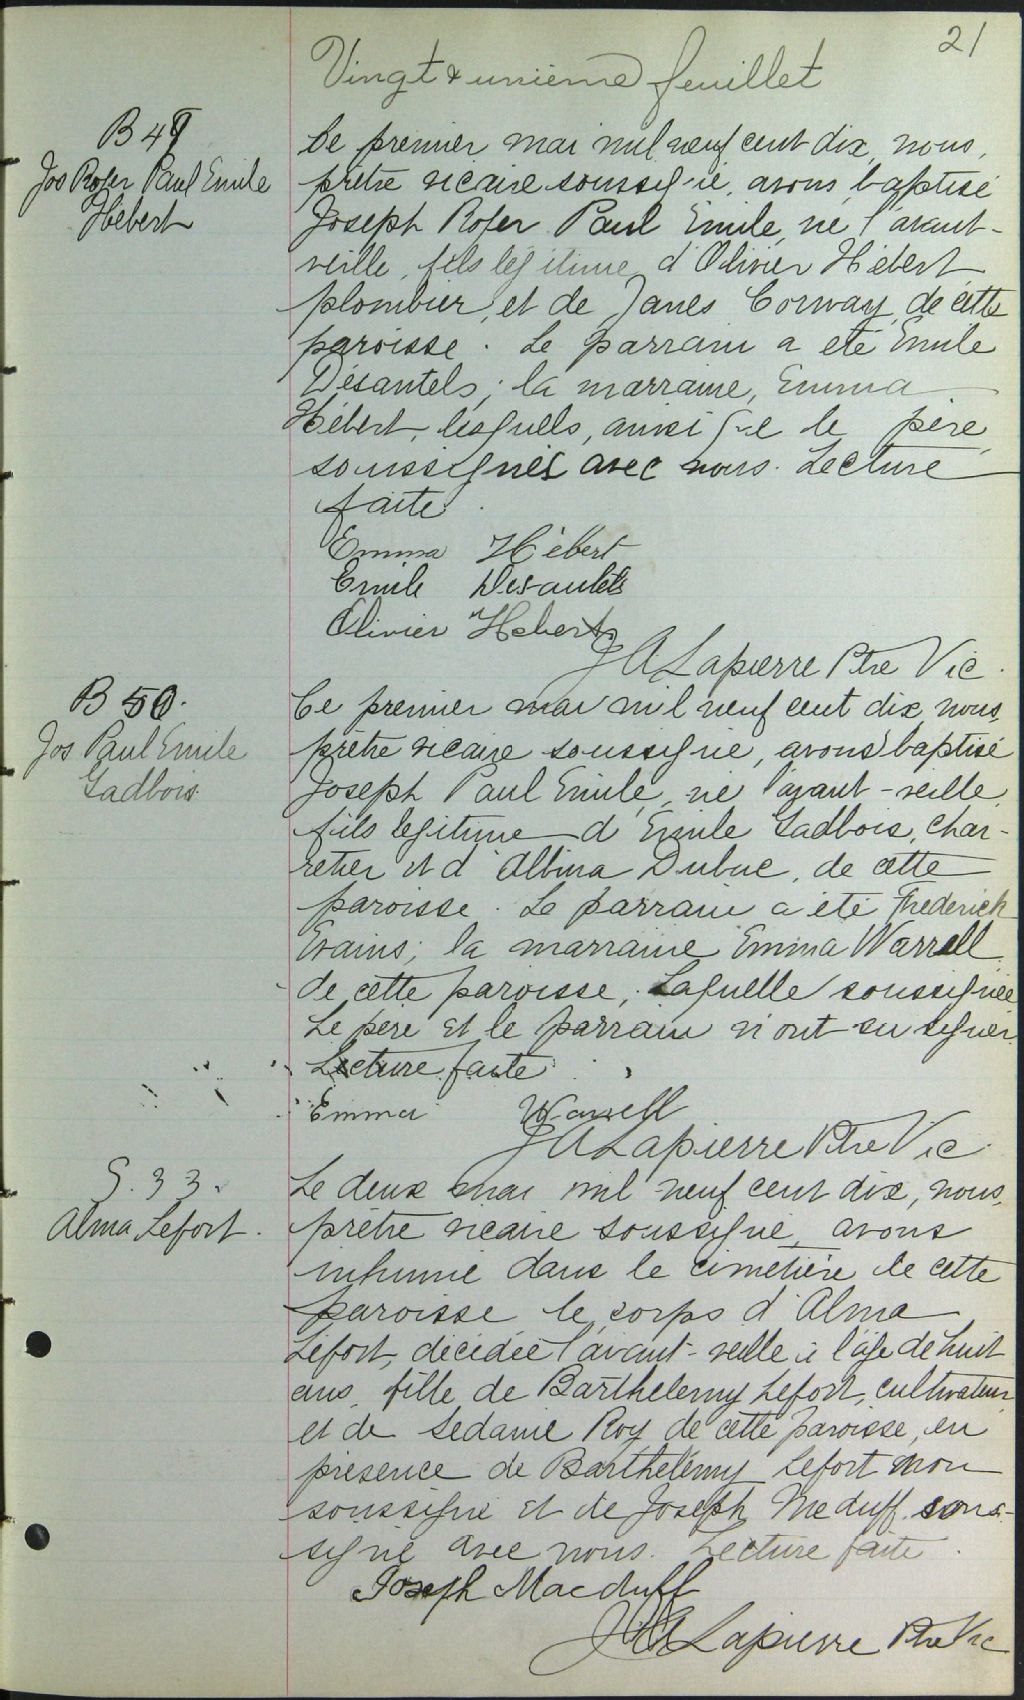 21
Vingt & unième feuillet
B 49
Jos Roger Paul Emile
Hébert
Ce premier mai mil neuf cent dix, nous,
prêtre vicaire soussigné, avons baptisé
Joseph Roger Paul Emile, né l'avant-
veille, fils légitime d'Olivier Hébert
plombier, et de Janes Conway, de cette
paroisse. Le parrain a été Emile
Désautels; la marraine, Emma
Hébert, lesquels, ainsi que le père,
soussignés avec nous. Lecture
faite.
Emma Hébert
Emile Desautels
Olivier Hebert
JALapierre Ptre Vic.
B 50.
Jos Paul Emile
Gadbois
Ce premier mai mil neuf cent dix, nous,
prêtre vicaire soussigné, avons baptisé
Joseph Paul Emile, né l'avant-veille,
fils légitime d'Emile Gadbois, char-
retier et d'Albina Dubuc, de cette
paroisse. Le parrain a été Frederick
Evains; la marraine Emma Warrell
de cette paroisse, Laquelle soussignée
Le père et le parrain n'ont su signer.
Lecture faite
Emma Warrell
JALapierre Ptre Vic.
S. 33.
Alma Lefort.
Le deux mai mil neuf cent dix, nous,
prêtre vicaire soussigné, avons
inhumé dans le cimetière de cette
paroisse le corps d'Alma
Lefort, décédée l'avant-veille à l'âge de huit
ans, fille de Barthelemy Lefort, cultivateur
et de Sedame Roy de cette paroisse, en
présence de Barthélémy Lefort non
soussigné et de Joseph Meduff sous-
signé avec nous. Lecture faite.
Joseph Macduff
JALapierre Ptre Vic